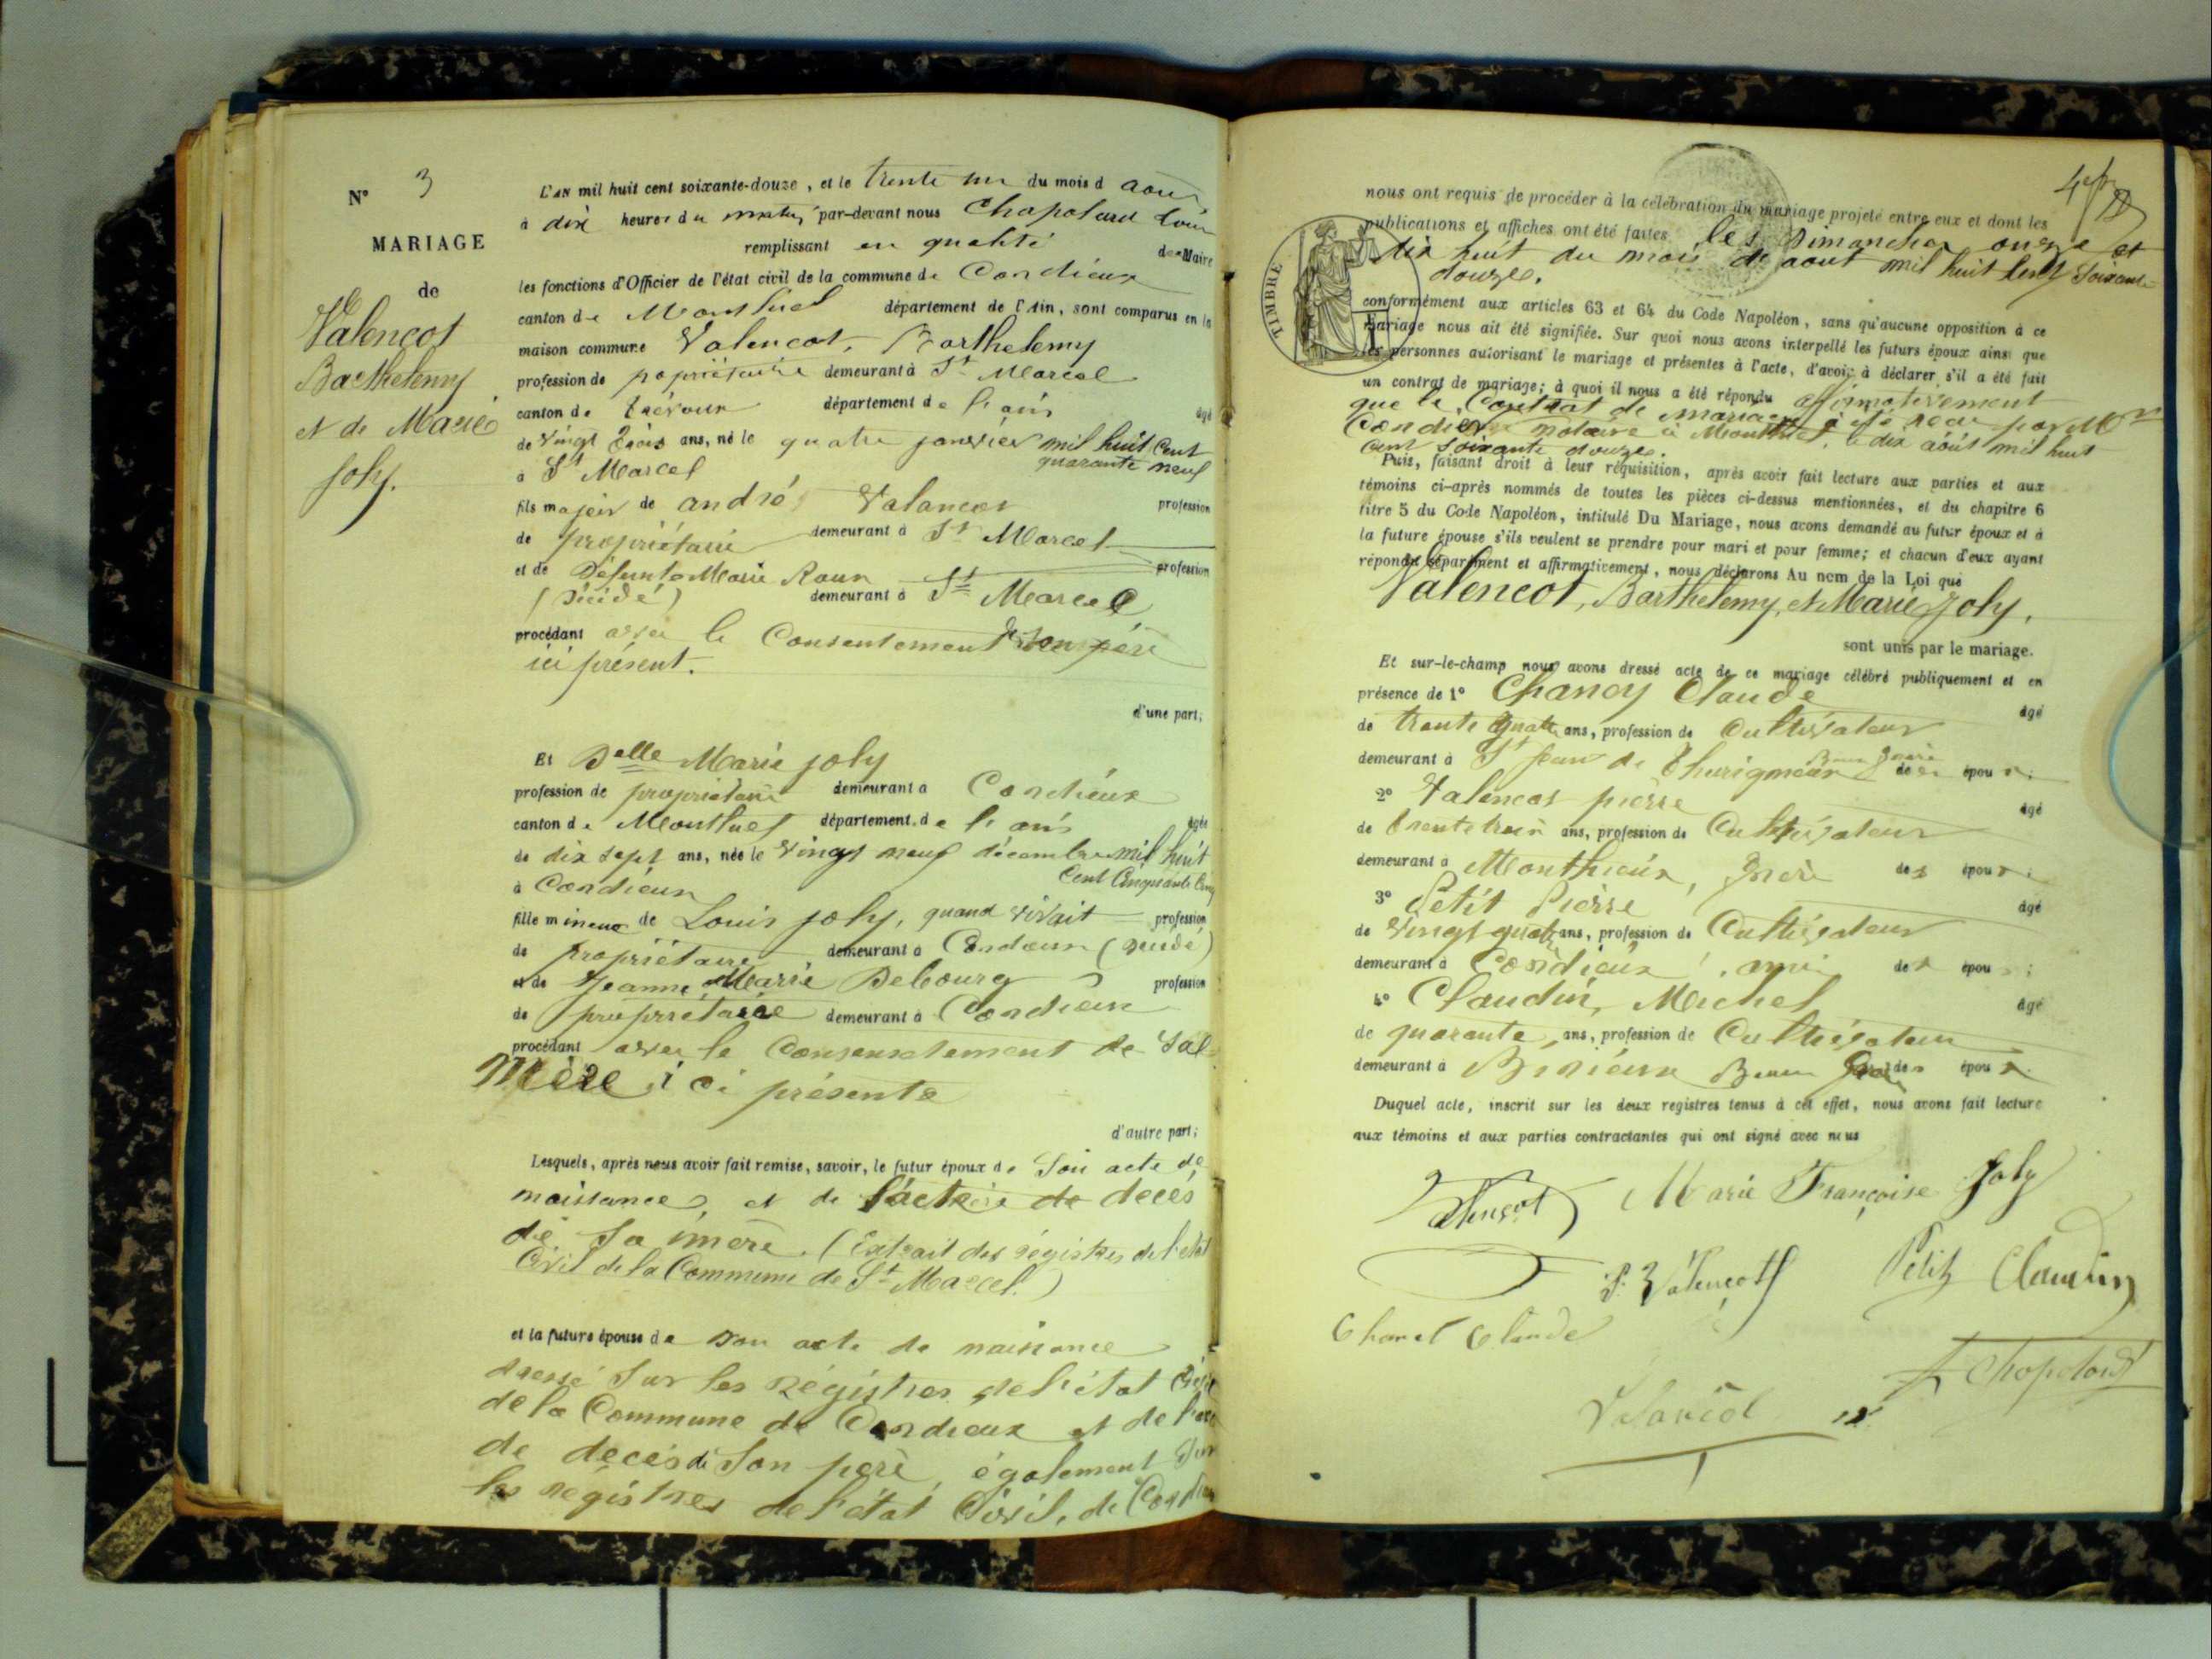 N° 3
MARIAGE
de
Valencot
Barthelemy
et de Marie
Joly.
L'AN mil huit cent soixante-douze, et le trente un du mois d aout
à dix heures du matin par-devant nous Chapolard Louis
remplissant en qualité de Maire
les fonctions d'Officier de l'état civil de la commune de Cordieux
canton de Montluel département de l'Ain, sont comparus en la
maison commune Valencot, Barthelemy
profession de propriétaire demeurant à St Marcel
canton de Trévoux département de l'ain âgé
de vingt trois ans, né le quatre janvier mil huit Cent
quarante neuf
à St Marcel
fils majeur de andré Valancot profession
de propriétaire demeurant à St Marcel
et de Défunte Marie Roux profession
(Décidé) demeurant à St Marcel
procédant avec le Consentement de son père
ici présent.
d'une part;
Et Delle Marie Joly
profession de propriétaire demeurant à Cordieux
canton de Montluel département de l'ain âgée
de dix sept ans, née le vingt neuf décembre mil huit
Cent Cinquante Cinq
à Cordieux
fille mineure de Louis Joly, quand vivait profession
de propriétaire demeurant à Cordieux (décidé)
et de Jeanne Marie Debourg profession
de propriétaire demeurant à Cordieux
procédant avec le Consensetement de Sa
Mère ici présente
d'autre part;
Lesquels, après nous avoir fait remise, savoir, le futur époux de Son acte de
naissance, et de l'acte de décès
de Sa mère. (Extrait des régistres de l'état
Civil de la Commune de St Marcel.)
et la future épouse de Son acte de naissance
dressé Sur les régistres de l'état Civil
de la Commune de Cordieux et de l'acte
de décès de Son père, également Sur
les régistres de l'état Civil, de Cordieux
nous ont requis de procéder à la célébration du mariage projeté entre eux et dont les
publications et affiches ont été faites les Dimanches onze et
dix huit du mois de aout mil huit Cent Soixante
douze.
conformément aux articles 63 et 64 du Code Napoléon, sans qu'aucune opposition à ce
mariage nous ait été signifiée. Sur quoi nous avons interpellé les futurs époux ainsi que
les personnes autorisant le mariage et présentes à l'acte, d'avoir à déclarer s'il a été fait
un contrat de mariage; à quoi il nous a été répondu affirmativement
que le Contrat de mariage a été reçu par Mr
notaire à Montluel, le dix août mil huit
cent soixante douze.
Puis, faisant droit à leur réquisition, après avoir fait lecture aux parties et aux
témoins ci-après nommés de toutes les pièces ci-dessus mentionnées, et du chapitre 6
titre 5 du Code Napoléon, intitulé Du Mariage, nous avons demandé au futur époux et à
la future épouse s'ils veulent se prendre pour mari et pour femme; et chacun d'eux ayant
répondu séparément et affirmativement, nous déclarons Au nom de la Loi que
Valencot, Barthelemy, et Marie Joly,
sont unis par le mariage.
Et sur-le-champ nous avons dressé acte de ce mariage célébré publiquement et en
présence de 1° Chanoy Claude âgé
de trente quatre ans, profession de Cultivateur
demeurant à St Jean de Thurigneux Beau frère des époux;
2° Valencot pierre âgé
de trente trois ans, profession de Cultivateur
demeurant à Monthieux, frère des époux;
3° Petit Pierre âgé
de vingt quatre ans, profession de Cultivateur
demeurant à Cordieux, ami des époux;
4° Claudin, Michel âgé
de quarante, ans, profession de Cultivateur
demeurant à Beau frère des époux.
Duquel acte, inscrit sur les deux registres tenus à cet effet, nous avons fait lecture
aux témoins et aux parties contractantes qui ont signé avec nous
Valençot Marie Françoise Joly
P. Valençot Petit Claudin
Chanel Claude
L Chapolard
TIMBRE